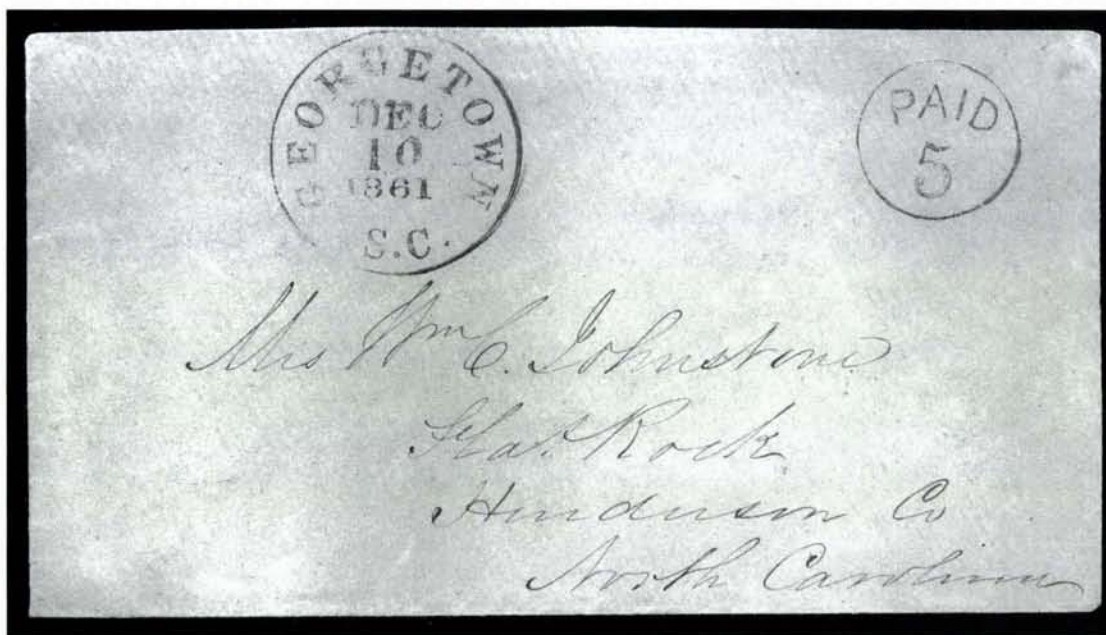 GEORGETOWN
DEC
10
1861
S.C.
PAID
5
Mrs Wm C. Johnstone
Flat Rock
Henderson Co
North Carolina